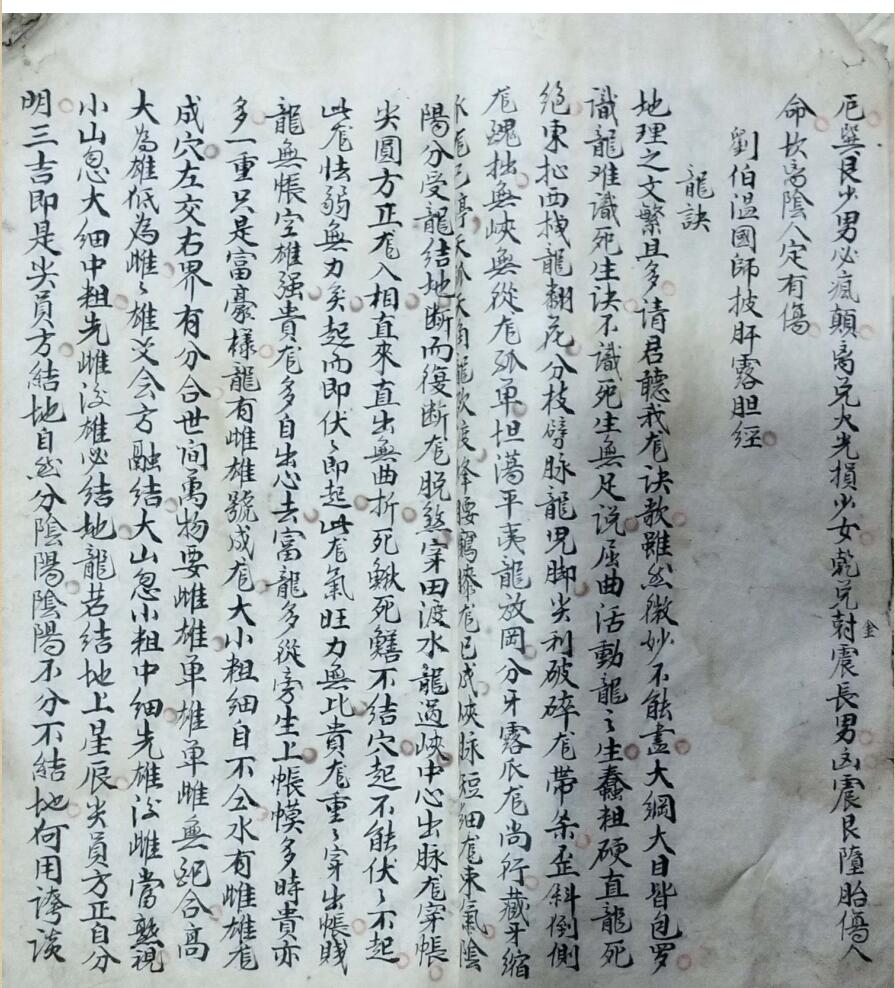 厄巽艮少男必瘋顛离兑火光損少女乾兑金尅震長男凶震艮墮胎傷人
命坎离陰人定有傷
劉伯温國師披肝露胆經
龍訣
地理之文繁且多請君聽我龙訣歌雖然微妙不能盡大綱大目皆包罗
識龍难識死生诀不識死生無足说屈曲活動龍之生蠢粗硬直龍死
绝東扯西拽龍翻花分枝劈脉龍鬼脚尖利破碎龙带杀歪斜倒側
龙醜拙無峽無從龙孤单坦蕩平夷龍放岡分牙露爪龙尚行藏牙縮
陽分受龍結地断而復断龙脱煞穿田渡水龍過峽中心出脉龙穿帳
尖圓方正龙入相直來直出無曲折死鰍死鱔不結穴起不能伏伏不起
此龙怯弱無力矣起而即伏伏即起此龙氣旺力無比貴龙重重穿出帳賤
龍無帳空雄强貴龙多自出心去富龍多從旁生上帳幙多時貴亦
多一重只是富豪樣龍有雌雄號成龙大小粗細自不仝水有雌雄龙
成穴左交右界有分合世间萬物要雌雄单雄单雌無配合高
大為雄低為雌雌雄交会方融結大山忽小粗中细先雄後雌當熟視
小山忽大细中粗先雌後雄必结地龍若結地上星辰尖員方正自分
明三吉即是尖員方結地自然分陰陽陰陽不分不結地何用誇談